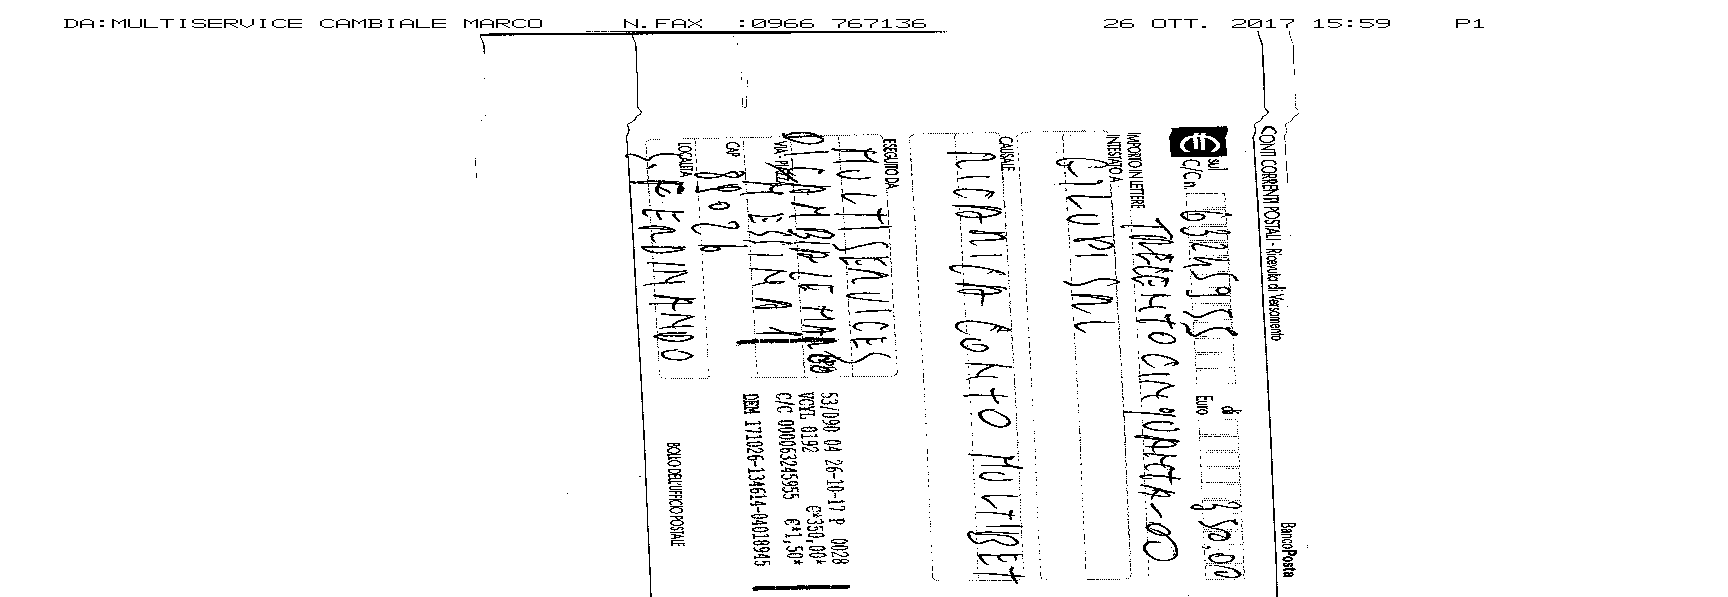 DA:MULTISERVICE CAMBIALE MARCO N.FAX :0966 767136 26 OTT. 2017 15:59 P1
CONTI CORRENTI POSTALI - Ricevuta di Versamento BancoPosta
sul C/C n. 63245955 di Euro 350,00
IMPORTO IN LETTERE TRECENTOCINQUANTA-00
INTESTATO A
GILUPI SRL
CAUSALE
RICARICA CONTO MULTIBET
ESEGUITO DA
MULTISERVICES
DI CAMBIALE MARCO
VIA - PIAZZA
MESSINA 1
CAP
89026
LOCALITÀ
S. FERDINANDO
53/090 04 26-10-17 P 0028
VCYL 0192 €*350,00*
C/C 000063245955 €*1,50*
DEM 171026-134614-04018945
BOLLO DELL'UFFICIO POSTALE